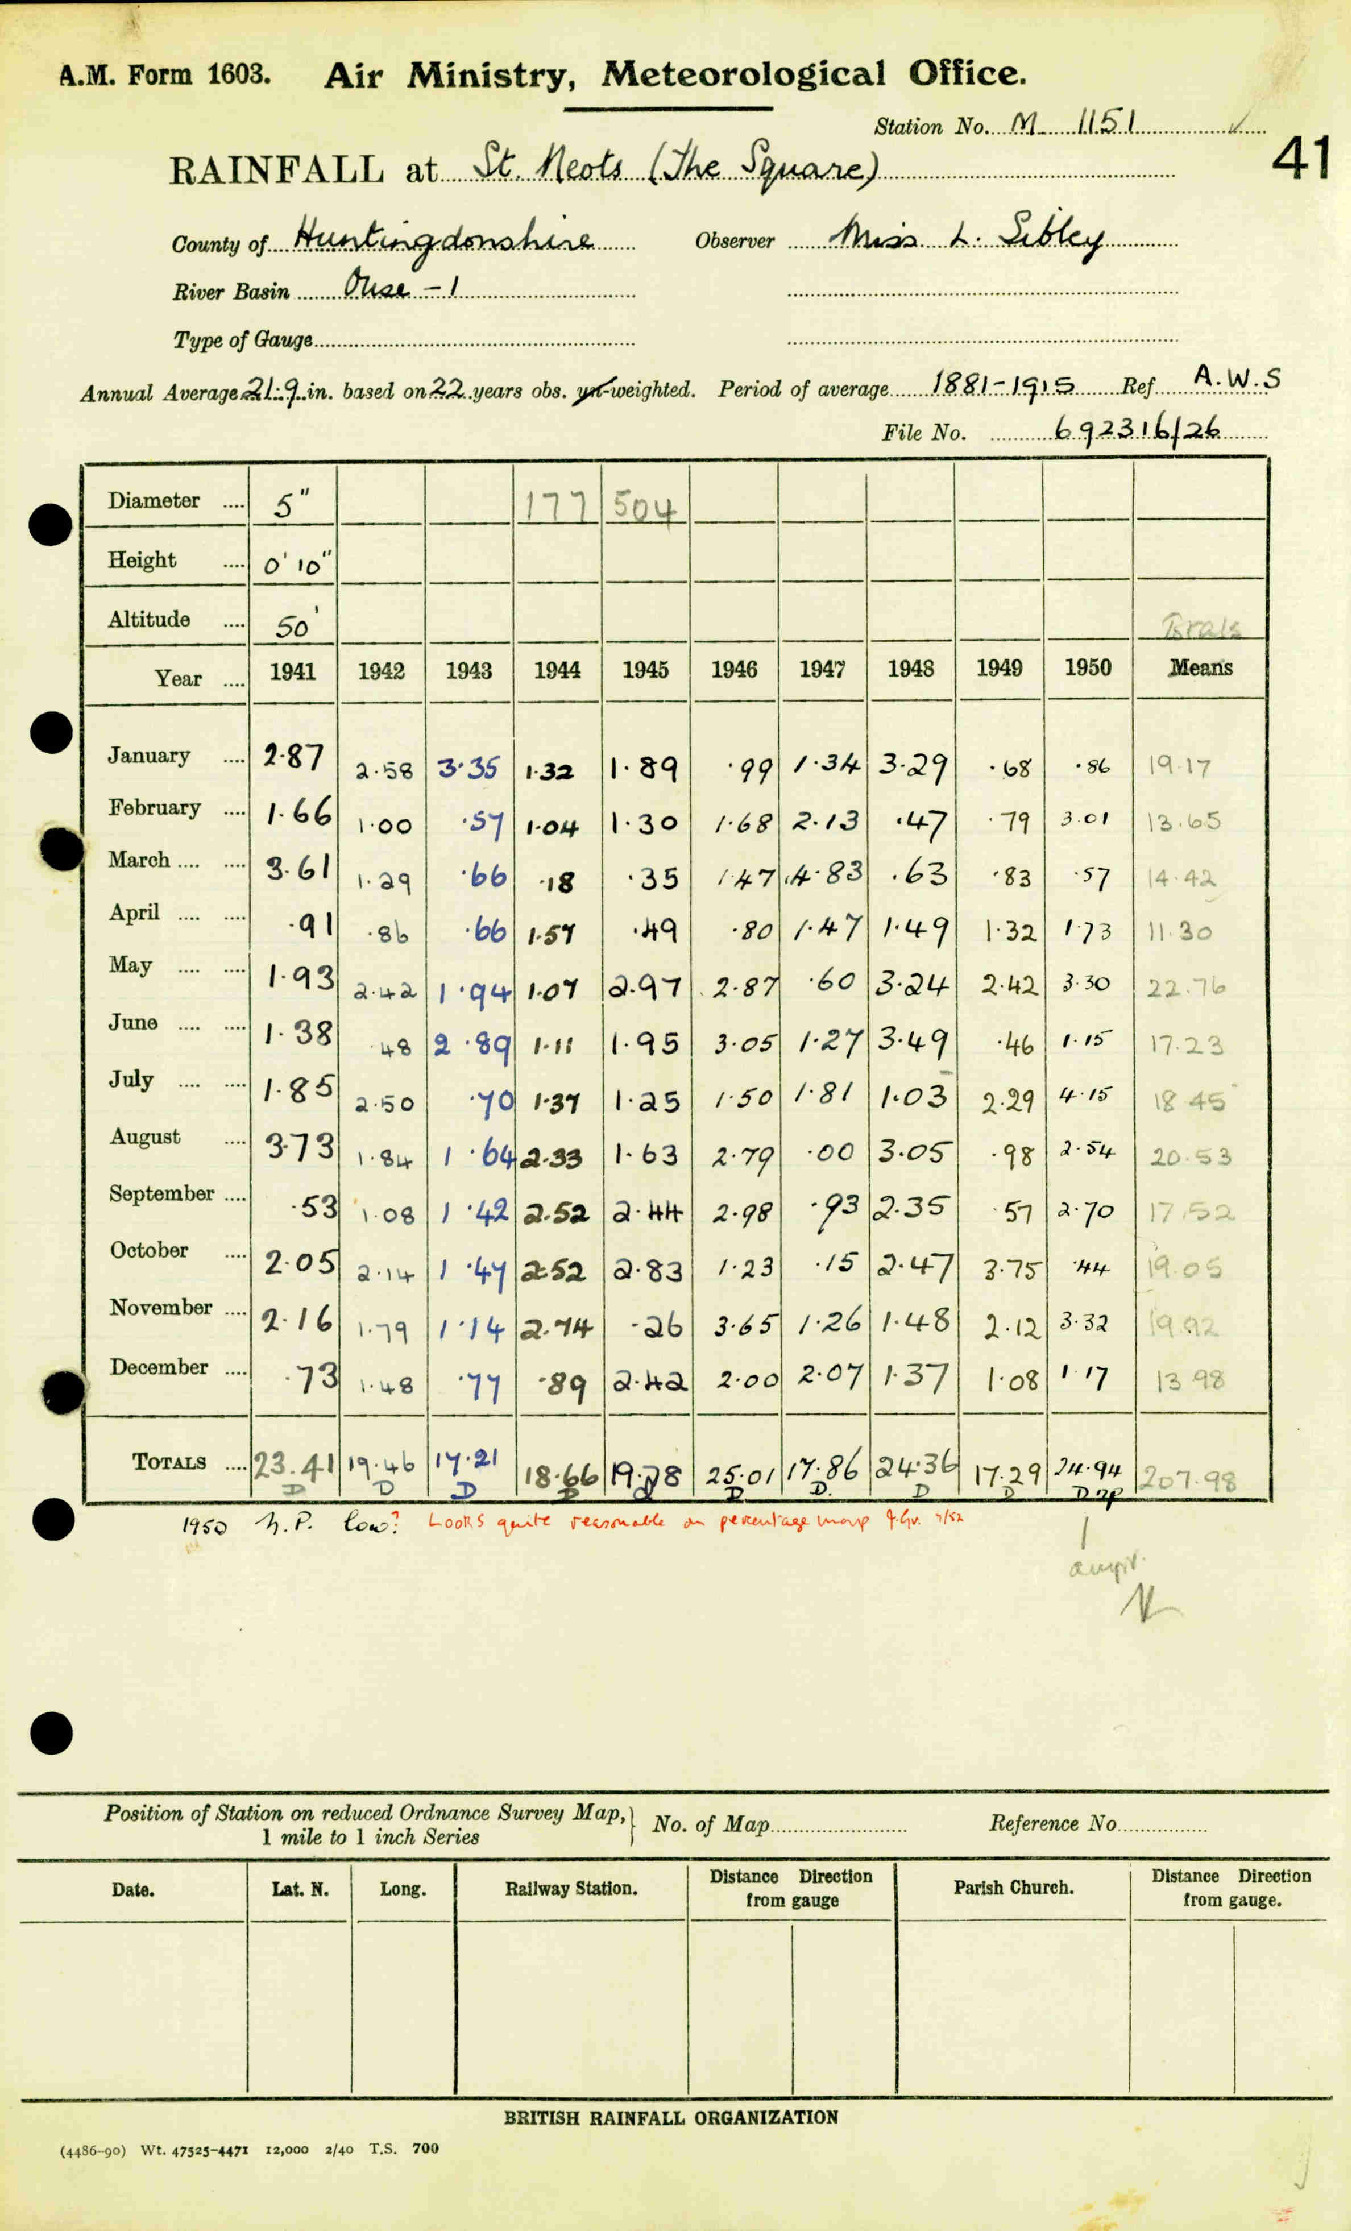 A.M. Form 1603. Air Ministry, Meteorological Office.
Station No. M 1151 ✓
RAINFALL at St. Neots (The Square) 41
County of Huntingdonshire Observer Miss L. Sibley
River Basin Ouse - 1
Type of Gauge
Annual Average 21.9 in. based on 22 years obs. un-weighted. Period of average 1881-1915 Ref A.W.S
File No. 692316/26
Diameter .... 5" 177 504
Height .... 0' 10"
Altitude .... 50'
Year .... 1941 1942 1943 1944 1945 1946 1947 1948 1949 1950 Means
January .... 2.87 2.58 3.35 1.32 1.89 .99 1.34 3.29 .68 .86 19.17
February .... 1.66 1.00 .57 1.04 1.30 1.68 2.13 .47 .79 3.01 13.65
March .... .... 3.61 1.29 .66 .18 .35 1.47 4.83 .63 .83 .57 14.42
April .... .... .91 .86 .66 1.57 .49 .80 1.47 1.49 1.32 1.73 11.30
May .... .... 1.93 2.42 1.94 1.07 2.97 2.87 .60 3.24 2.42 3.30 22.76
June .... .... 1.38 .48 2.89 1.11 1.95 3.05 1.27 3.49 .46 1.15 17.23
July .... .... 1.85 2.50 .70 1.37 1.25 1.50 1.81 1.03 2.29 4.15 18.45
August .... 3.73 1.84 1.64 2.33 1.63 2.79 .00 3.05 .98 2.54 20.53
September .... .53 1.08 1.42 2.52 2.44 2.98 .93 2.35 .57 2.70 17.52
October .... 2.05 2.14 1.47 2.52 2.83 1.23 .15 2.47 3.75 .44 19.05
November .... 2.16 1.79 1.14 2.74 .26 3.65 1.26 1.48 2.12 3.32 19.92
December .... .73 1.48 .77 .89 2.42 2.00 2.07 1.37 1.08 1.17 13.98
TOTALS .... 23.41 19.46 17.21 18.66 19.78 25.01 17.86 24.36 17.29 24.94 207.98
D D D D D D D D D
1950 N.P. low? Looks quite reasonable on percentage map
Position of Station on reduced Ordnance Survey Map, } No. of Map Reference No
1 mile to 1 inch Series
Date. Lat. N. Long. Railway Station. Distance Direction from gauge Parish Church. Distance Direction from gauge.
BRITISH RAINFALL ORGANIZATION
(4486-90) Wt. 47525-4471 12,000 2/40 T.S. 700